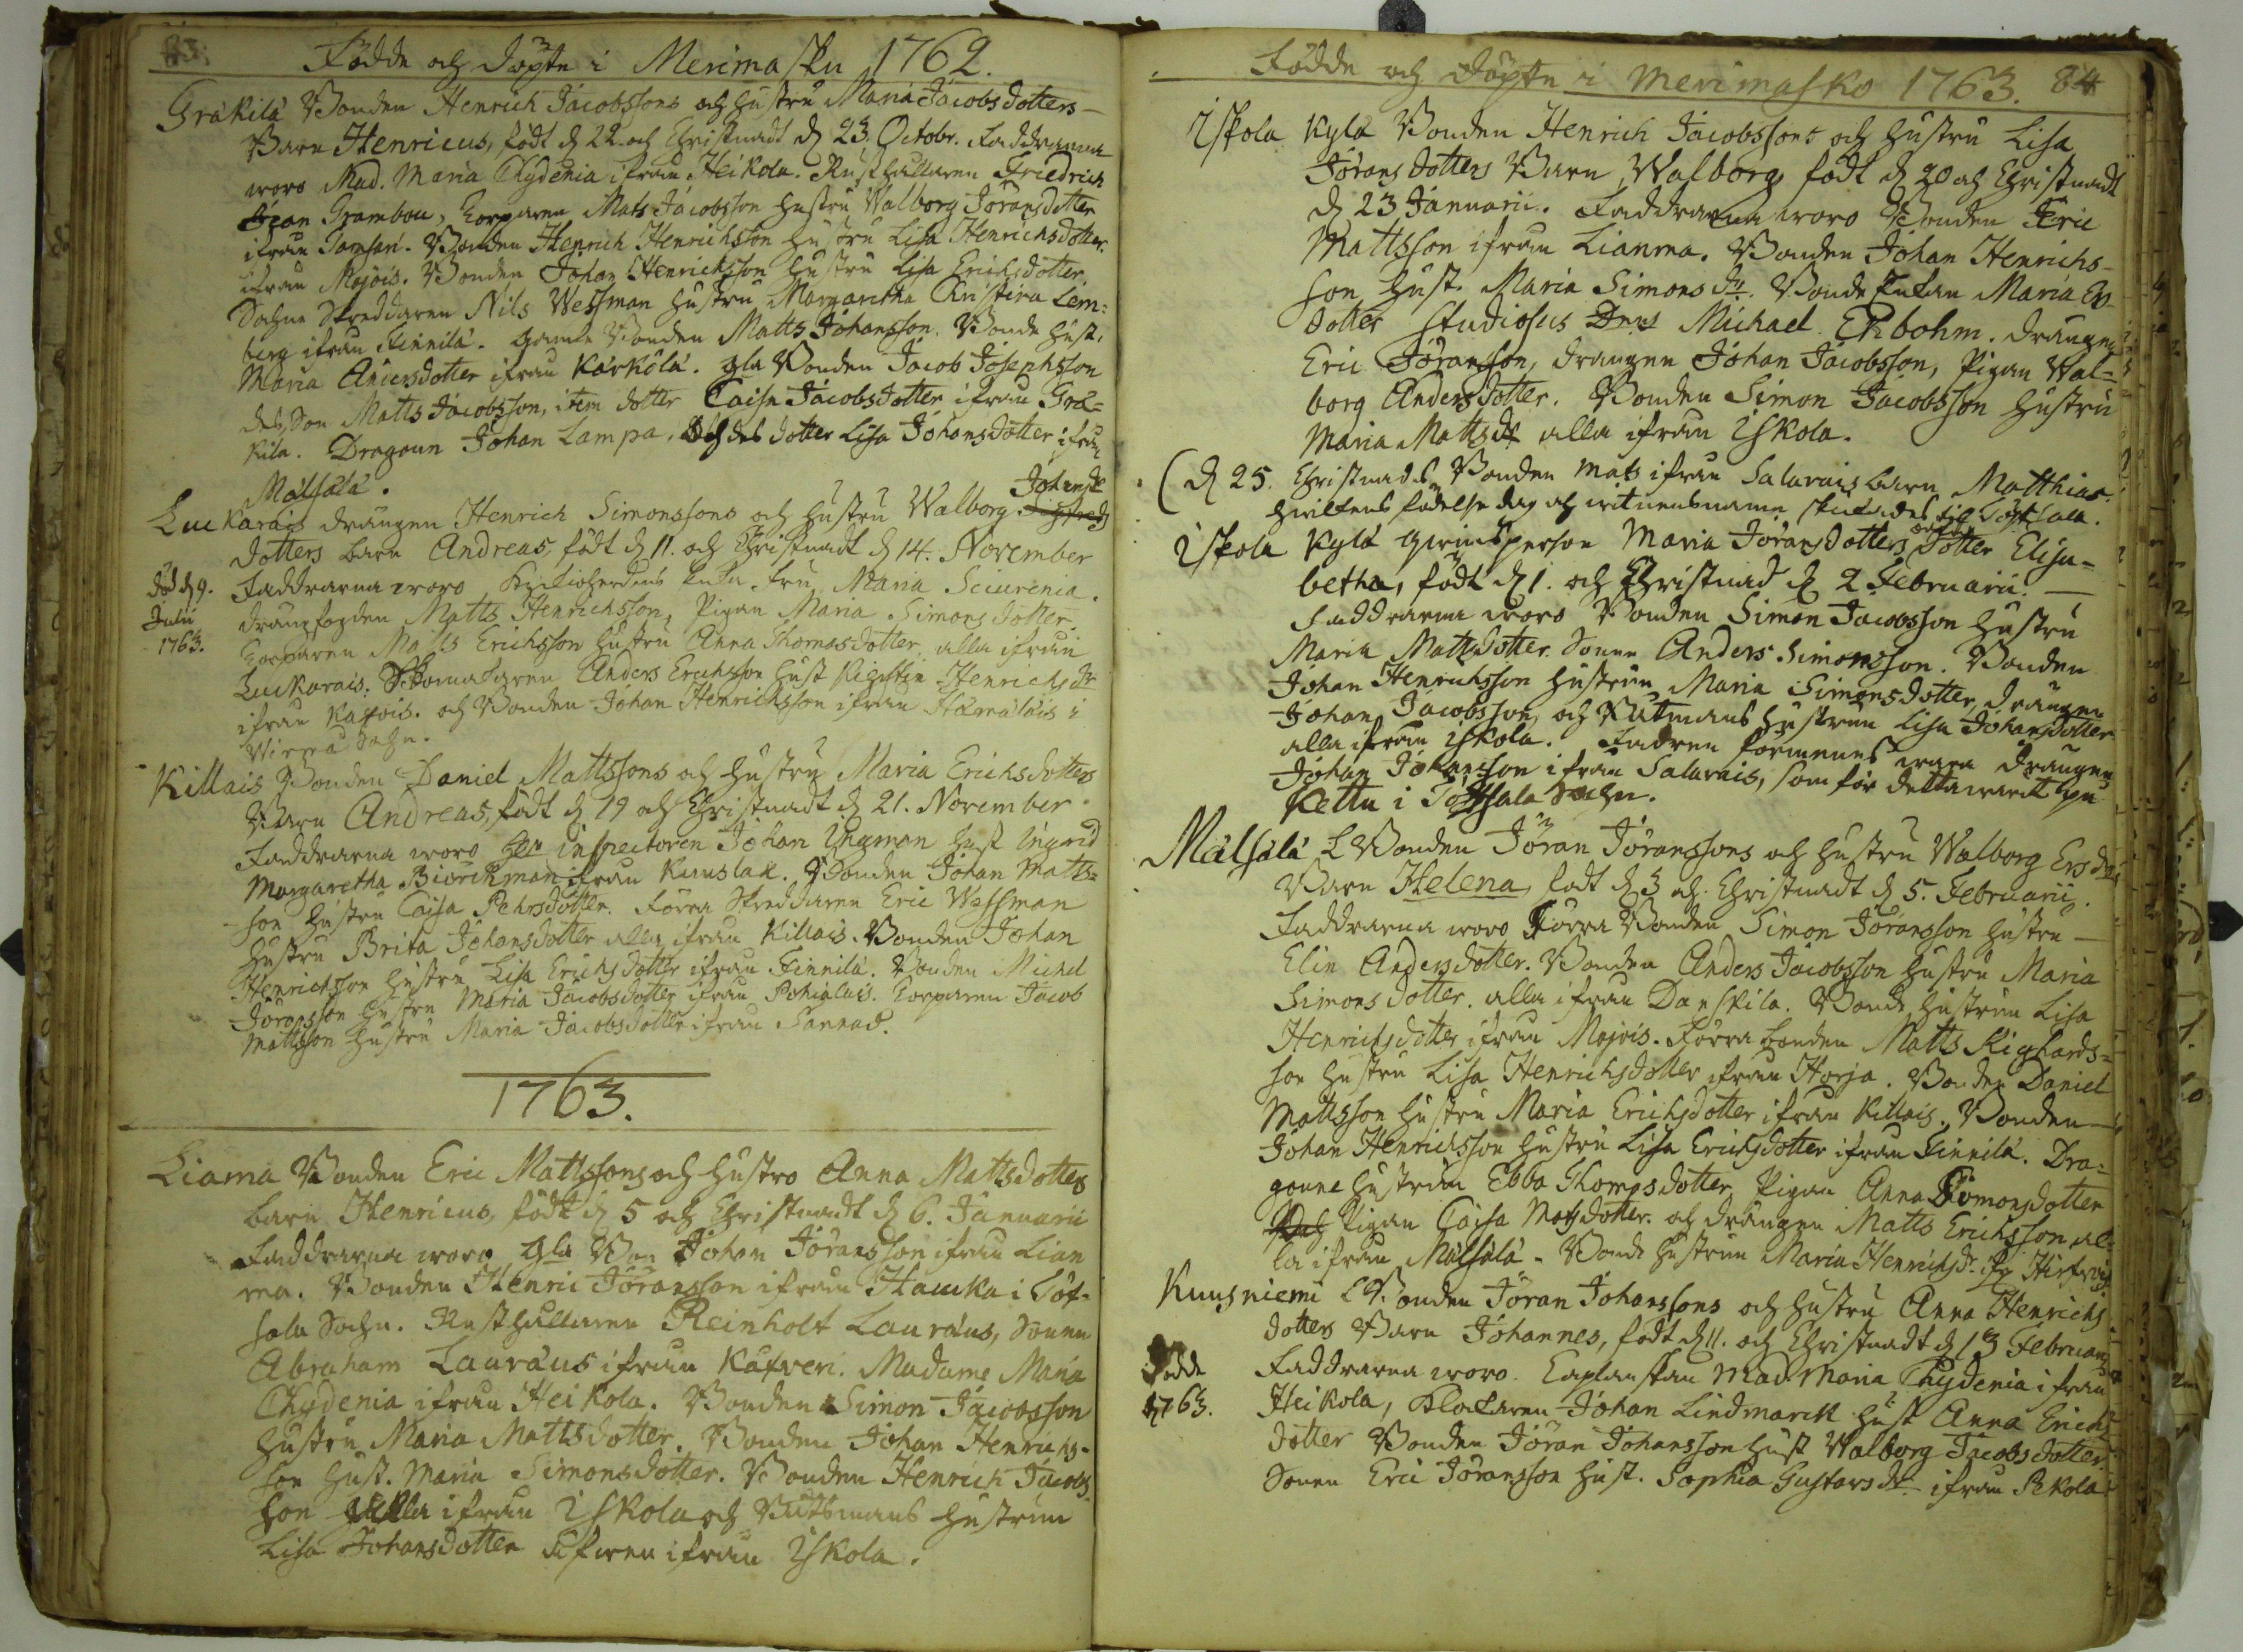 83.
Födde och döpte i Merimasku 1762.
Gräkilä Bonden Henrich Jacobssons och hustru Maria Jacobsdotters
Barn Henricus, födt d 22 och Christnadt d 23. Octobr. Faddrarna
woro Mad. Maria Chydenia ifrån Heikola. Rusthållaren Friedrich
Jean Grambou, Torparen Mats Jacobsson hustru Walborg Jöransdotter
ifrån Tamsari. Bonden Henrich Henrichsson hustru Lisa Henrichsdotter
ifrån Mojois. Bonden Johan Henrichsson hustru Lisa Erichsdotter
Sochne Skreddaren Nils Wessman hustru Margaretha Christina Lem=
berg ifrån Finnilä. Gamle Bonden Matts Johansson. Bonde hust.
Maria Andersdotter ifrån Kärkölä. gla Bonden Jacob Josephsson
des Son Matts Jacobsson, item dotter Caisa Jacobsdotter ifrån Grä=
kilä. Dragoun Johan Lampa. Och des dotter Lisa Johansdotter ifrån
Mälsälä.
Luckarais drängen Henrich Simonssons och hustru Walborg Johans
dotters barn Andreas, födt d 11. och Christnadt d 14. November
död d 9. Faddrarna woro Kyrkioherdens Enka fru Maria Sciurenia.
Julii drängfogden Matts Henrichsson, Pigan Maria Simonsdotter.
1763. Torparen Matts Erichsson hustru Anna Thomasdotter alla ifrån
Luckarais. Skomakaren Anders Erichsson hust Kirstin Henrichsdr
ifrån Kaxois. och Bonden Johan Henrichsson ifrån Hämäläis i
Virmo Sochn.
Killais Bonden Daniel Mattssons och hustru Maria Erichsdotters
Barn Andreas, födt d 19 och Christnadt d 21. November
Faddrarna woro Hr inspectoren Johan Ungman hust Ingrid
Margaretha Biörckman ifrån Kuuslax. Bonden Johan Matts=
son hustru Caisa Pehrsdotter. Förra Skreddaren Eric Wessman
hustru Brita Johansdotter alla ifrån Killais. Bonden Johan
Henrichsson hustru Lisa Erichsdotter ifrån Finnilä. Bonden Michel
Jöransson hustru Maria Jacobsdotter ifrån Pohialais. Torparen Jacob
Mattsson hustru Maria Jacobsdotter ifrån Sannad.
1763.
Liama Bonden Eric Mattssons och hustro Anna Mattsdotters
barn Henricus, födt d 5 och Christnadt d 6. Januarii
Faddrarna woro Gla Bon Johan Jöransson ifrån Lian
ma. Bonden Henric Jöransson ifrån Haucka i Töf=
sala Sochn. Rusthållaren Reinholt Lauræus, Sonen
Abraham Lauræus ifrån Kaitveri. Madame Maria
Chydenia ifrån Heikola. Bonden Simon Jacobsson
hustru Maria Mattsdotter. Bonden Johan Henrichs=
son hust. Maria Simonsdotter. Bonden Henrich Jacobs
son alla ifrån Iskola och Båtsmans hustrun
Lisa Johansdotter ifrån Iskola.
Födde och döpte i Merimasko 1763. 84
Iskola Kylä Bonden Henrich Jacobssons och hustru Lisa
Jöransdotters Barn Walborg födt d 20 och Christnadt
d 23 Januarii. Faddrarna woro Bonden Eric
Mattsson ifrån Lianma. Bonden Johan Henrichs=
son hust. Maria Simonsdr. Bonde Enkan Maria Ers
dotter Studiosus Dnus Michael Ekbohm. drängen
Eric Jöransson, drängen Johan Jacobsson, Pigan Wal=
borg Andersdotter. Bonden Simon Jacobsson hustru
Maria Mattsdr alla ifrån Iskola.
(d 25. Christnades Bonden Mats ifrån Salavais barn Matthias.
hvilkens födelsedag och witnens namn skickades til Töfsala.
Iskola Kylä qwinsperson Maria Jöransdotters dotter Elisa=
betha, födt d 1. och Christnad d 2 Februarii.
Faddrarna woro Bonden Simon Jacobsson hustru
Maria Mattsdotter. Sonen Anders Simonsson. Bonden
Johan Henrichsson hustrun Maria Simonsdotter, drängen
Johan Jacobsson, och Båtsmans hustrun Lisa Johansdotter
alla ifrån Iskola. Fadren förmenes wara drängen
Johan Johansson ifrån Salavais, som för detta warit på
Kettu i Töfsala Sochn.
Mälsälä L Bonden Jöran Jöranssons och hustru Walborg Ersdrs
Barn Helena, födt d 3 och Christnadt d 5. Februarii.
Faddrarna woro Förra Bonden Simon Jöransson hustru
Elin Andersdotter. Bonden Anders Jacobsson hustru Maria
Simonsdotter. alla ifrån Danskila. Bonde hustrun Lisa
Henrichsdotter ifrån Mojois. Förra bonden Matts Righards=
son hustru Lisa Henrichsdotter ifrån Horja. Bonden Daniel
Mattsson hustru Maria Erichsdotter ifrån Killais. Bonden
Johan Henrichsson hustru Lisa Erichsdotter ifrån Finnilä. Dra=
goune hustrun Ebba Thomasdotter Pigan Anna Simonsdotter
Pigan Caisa Matsdotter. och drängen Matts Erichsson al=
la ifrån Mälsälä. Bonde hustrun Maria Henrichsdr.
Kuusniemi L Bonden Jöran Johanssons och hustru Anna Henrichs
dotters Barn Johannes, födt d 11. och Christnadt d 13 Februarii
Födde Faddrarna woro. Caplanskan Mad. Maria Chydenia ifrån
1763. Heikola, Klockaren Johan Lindmarck hust Anna Erichs
dotter Bonden Jöran Johansson hust Walborg Jacobsdotter
Sonen Eric Jöransson hust. Sophia Gustavsdr ifrån Pekola